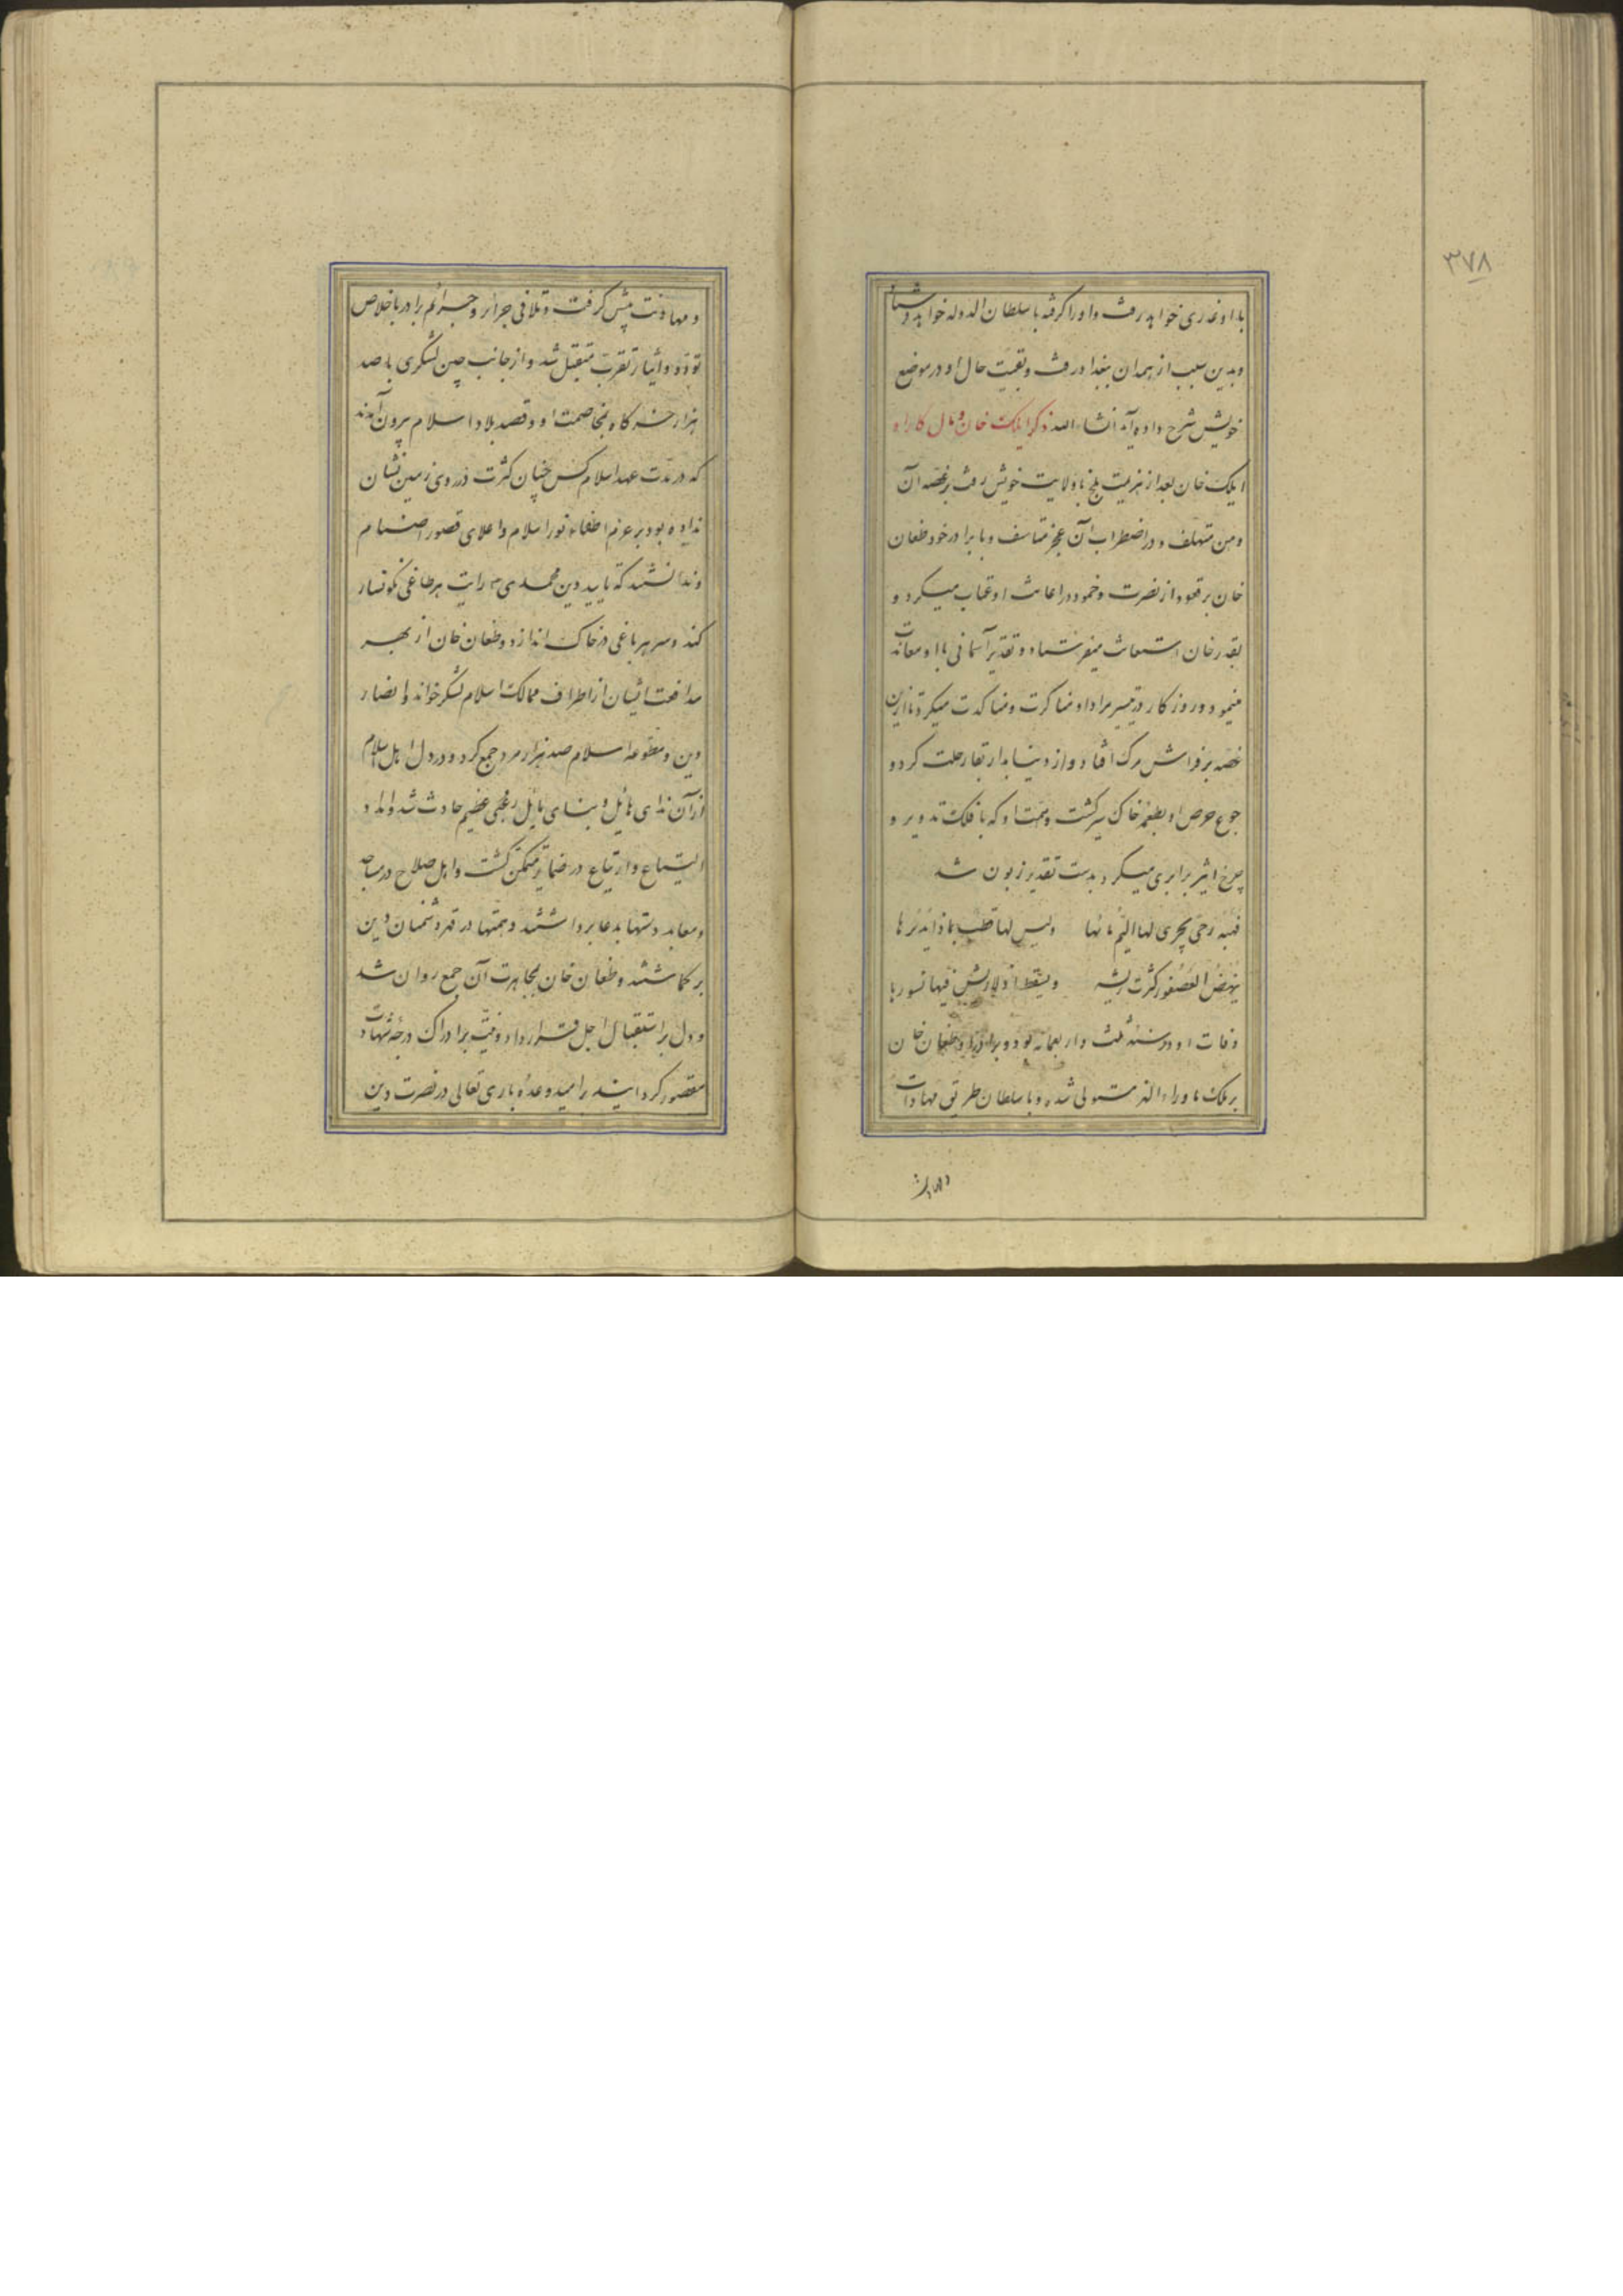 ۳۷۸
با او غدری خواهد رفت و او را گرفته با سلطان الدوله خواهد فرستاد
و بدین سبب از همدان ببغداد رفت و بقیت حال او در موضع
خویش شرح داده آید انشاء الله ذکر ایلک خان و مآل کار او
ایلک خان بعد از هزیمت بلخ با ولایت خویش رفت بر غصه آن
وهن متهلف و در اضطراب آن عجز متاسف و با برادر خود طغان
خان بر قعود از نصرت و خمود در اعانت او عتاب میکرد و
بقدر خان استعانت میفرستاد و تقدیر آسمانی با او معاندت
مینمود و روزگار در تیسیر مراد او مناکرت و مناکدت میکرد تا ازین
غصه بر فراش مرگ افتاد و از دنیا بدار بقا رحلت کرد و
جوع حرص او بطعمه خاک سیر گشت و همت او که با فلک تدویر و
چرخ اثیر برابری میکرد بدست تقدیر زبون شد
فهبه رحی یجری لها الیم مائها ولیس لها قطب بماذا یدیرها
ینهض العصفور کثرت ریشه ویسقط اذ لا ریش فیها نسورها
وفات او در سنه ثلث و اربعمائه بود و برادر او طغان خان
بر ملک ماوراء النهر مستولی شد و با سلطان طریق مهادات
و مهادنت پیش گرفت و تلافی جرائر و جرائم برادر باخلاص
تودد و ایثار تقرب متقبل شد و از جانب چین لشکری با صد
هزار خرگاه بمخاصمت او و قصد بلاد اسلام بیرون آمدند
که در مدت عهد اسلام کس چنان کثرت در روی زمین نشان
نداده بود بر عزم اطفاء نور اسلام و اعلای قصور اصنام
و ندانستند که تایید دین محمدی م رایت هر طاغی نگونسار
کند و سر هر باغی در خاک اندازد و طغان خان از بهر
مدافعت ایشان از اطراف ممالک اسلام لشکر خواند و انصار
دین و مطوعه اسلام صد هزار مرد جمع کرد و در دل اهل اسلام
از آن ندای هائل و بنای مایل رعبی عظیم حادث شد و امداد
التیاع و ارتیاع در ضمایر متمکن گشت و اهل صلاح در مساجد
و معابد دستها بدعا برداشتند و همتها در قهر دشمنان دین
برگماشتند و طغان خان بمجاهرت آن جمع روان شد
و دل بر استقبال اجل قرار داد و نیت بر ادراک درجه شهادت
مقصور گردانید بر امید وعده باری تعالی در نصرت دین